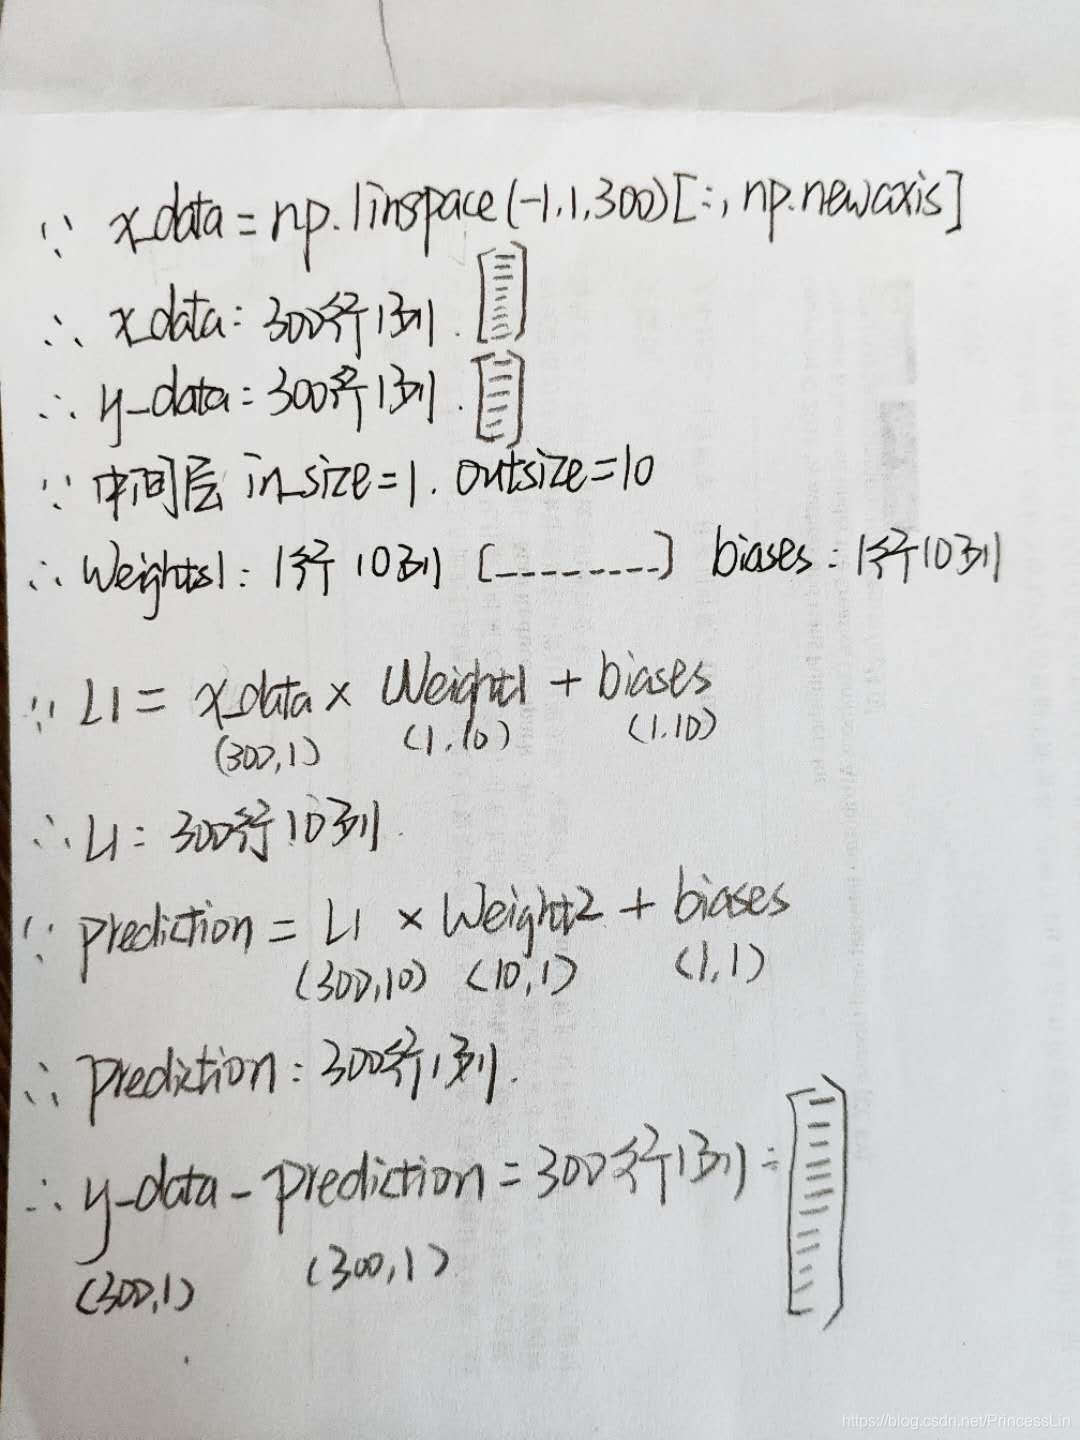 ∵ x_data = np.linspace(-1,1,300)[:, np.newaxis]
∴ x_data: 300行1列.
∴ y_data: 300行1列.
∵ 中间层 in_size=1. outsize=10
∴ Weights1: 1行10列 [---------] biases: 1行10列
∵ L1 = x_data × Weight1 + biases
(300,1) (1,10) (1,10)
∴ L1: 300行10列.
∵ prediction = L1 × Weight2 + biases
(300,10) (10,1) (1,1)
∴ prediction: 300行1列.
∴ y_data - prediction = 300行1列:
(300,1) (300,1)
https://blog.csdn.net/PrincessLin